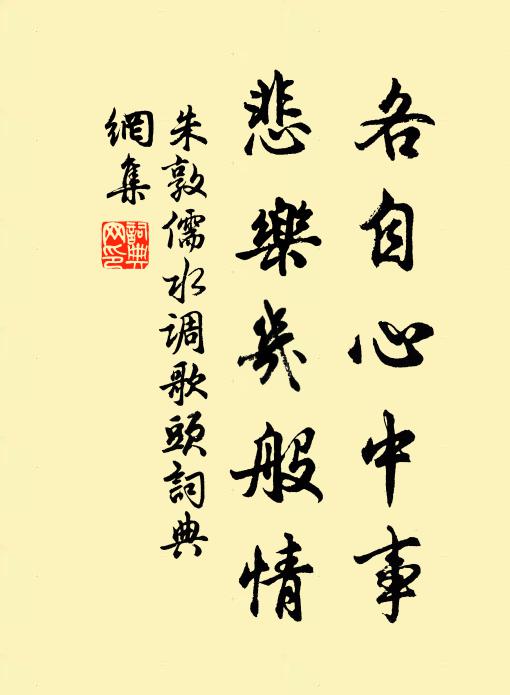 各自心中事
悲樂幾般情
朱敦儒水调歌頭詞典
網集
詞典
网印